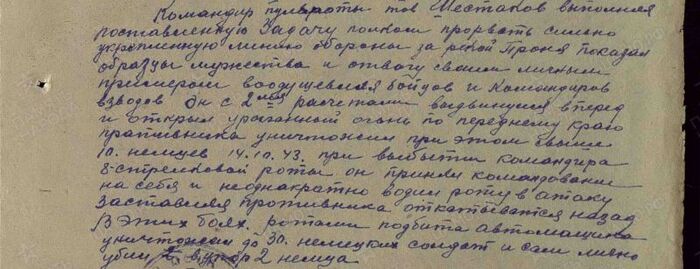 Командир пульроты тов Шестаков выполняя
поставленную Задачу полком прорвать сильно
укрепленную линию обороны за рекой Проня показал
образцы мужества и отвагу своим личным
примером воодушевлял бойцов и командиров
взводов Он с 2мя расчетами выдвинулся вперед
и открыл ураганный огонь по переднему краю
противника уничтожил при этом свыше
10. немцев 14.10.43. при выбытии командира
8-стрелковой роты он принял командование
на себя и неоднократно водил роту в атаку
заставляя противника откатываться назад
В этих боях. ротами подбита автомашина
уничтожено до 30. немецких солдат и сам лично
убил в упор 2 немца